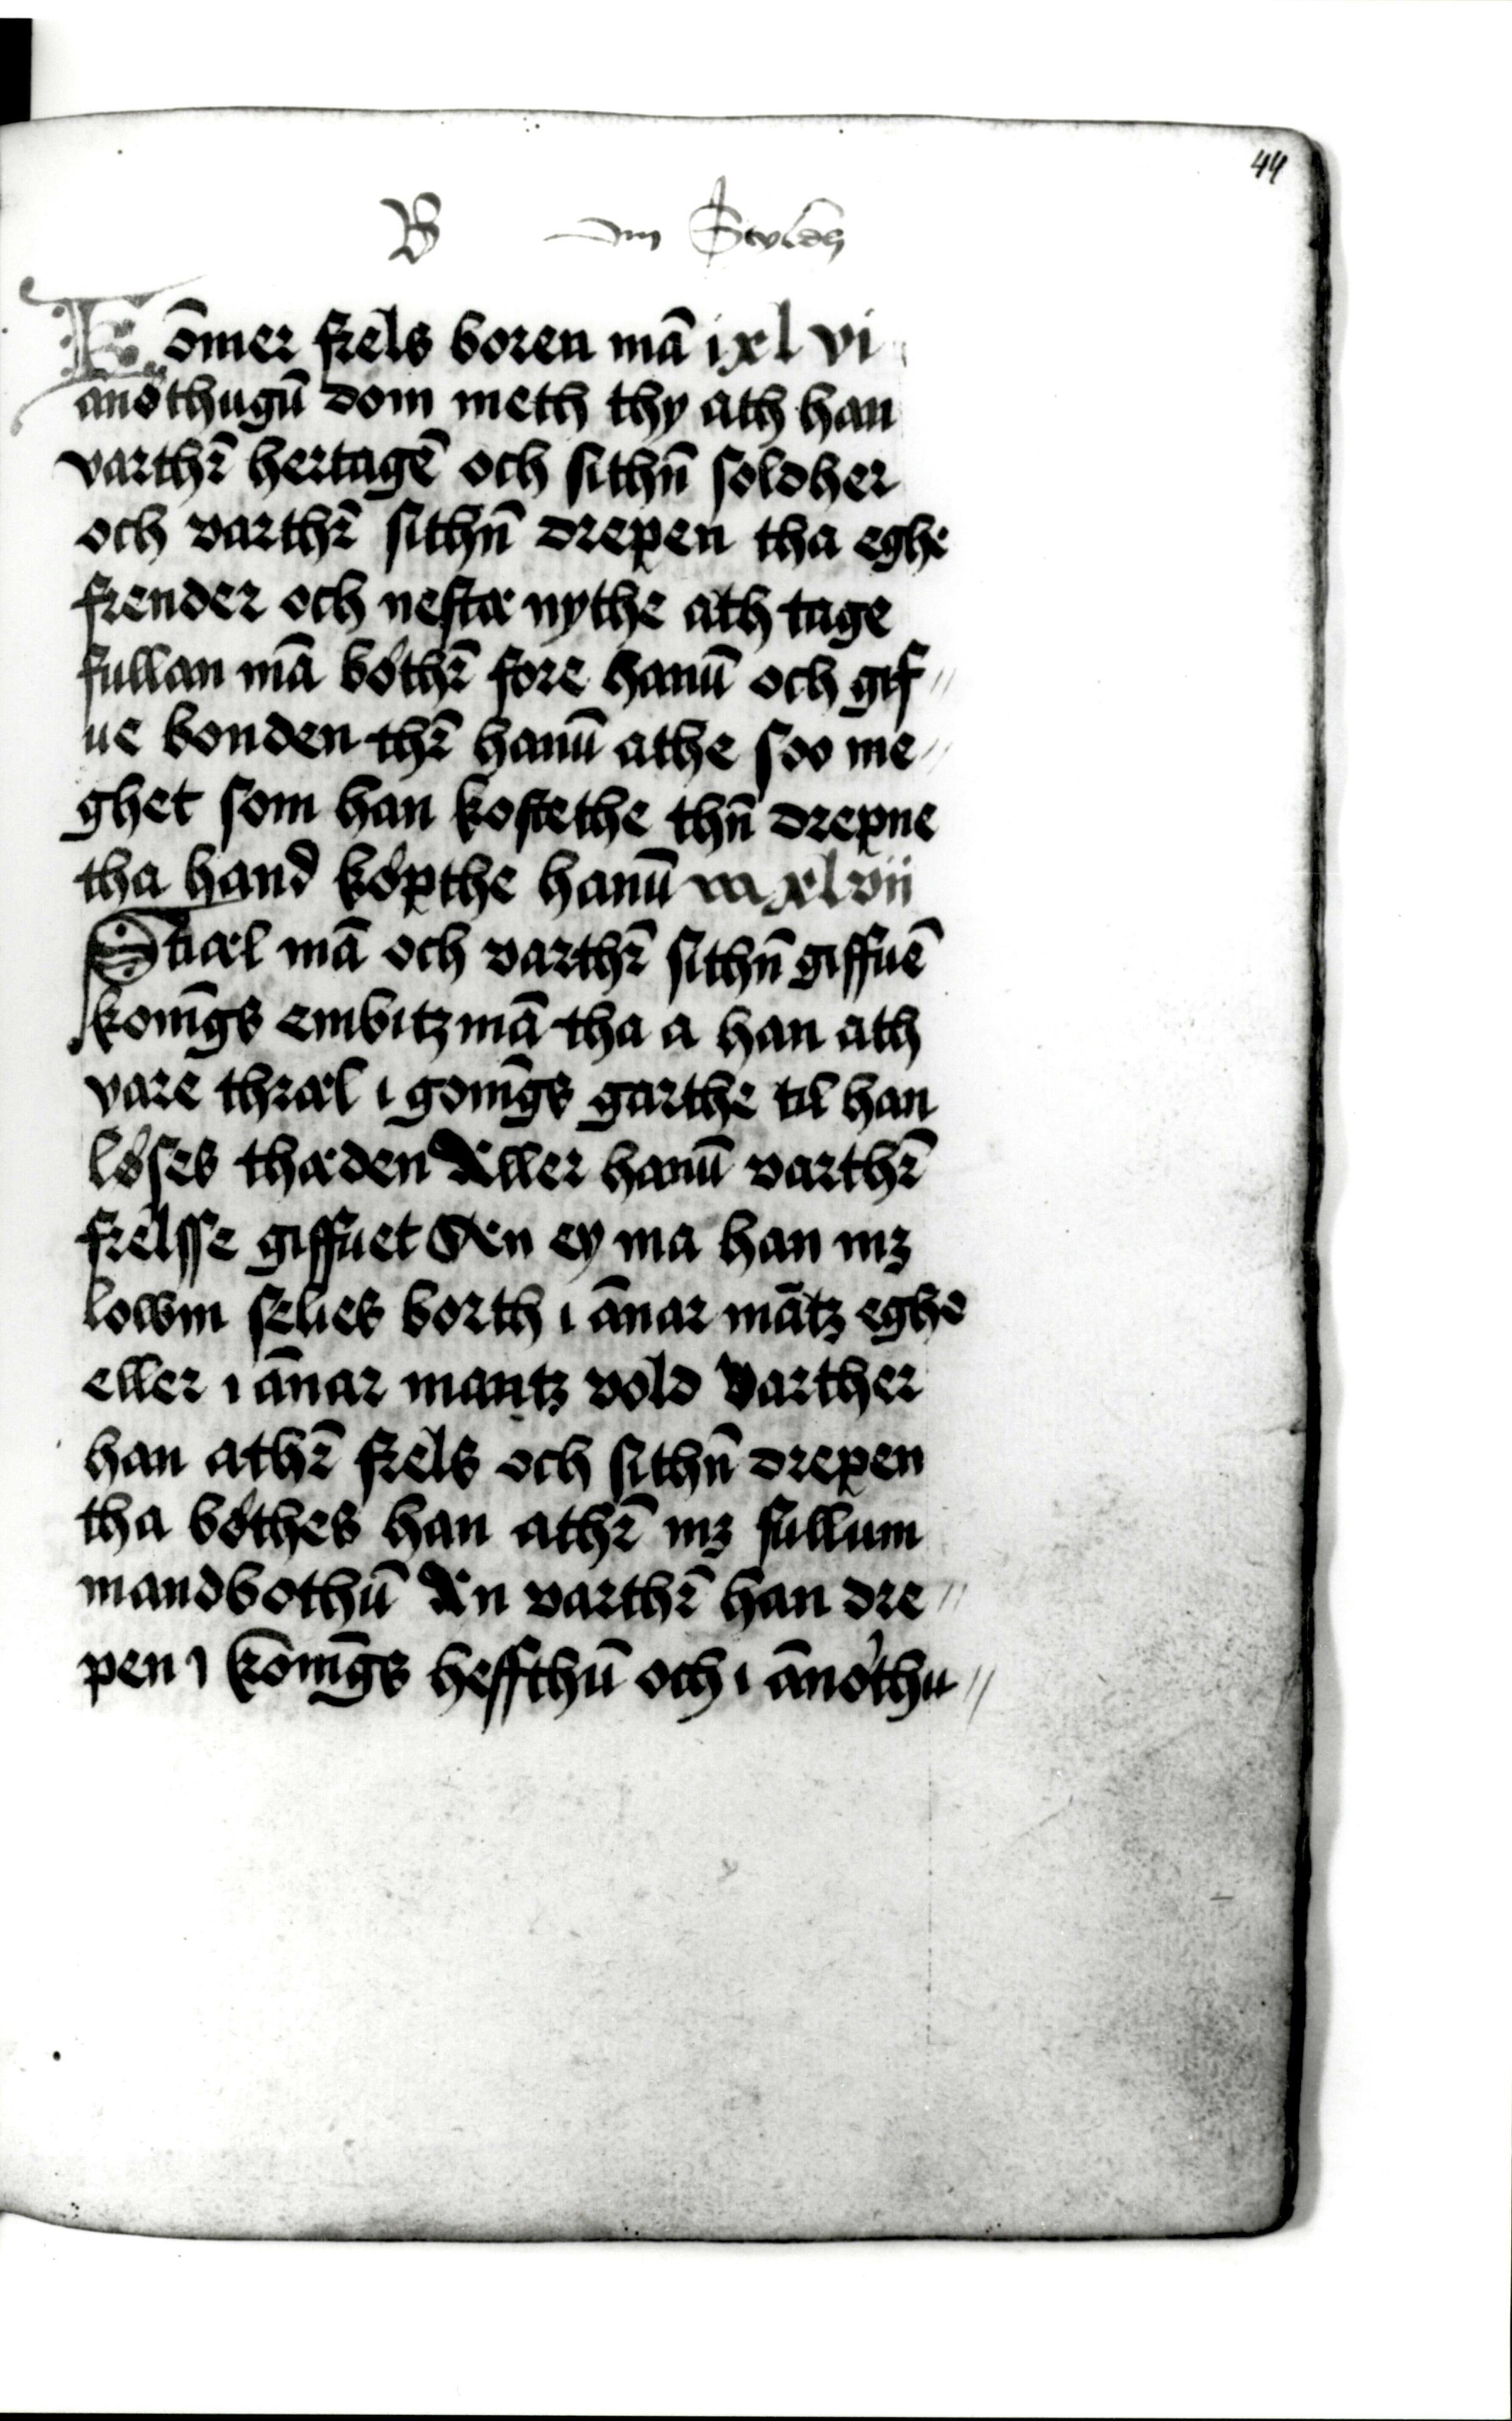 44
B om
Kōmer frels boren mā i xl vi
anōthugū dom meth thy ath han
varthꝛ̄ hertagē och sithn̄ soldher
och varthꝛ̄ sithn̄ drepen tha eghe
frender och nestæ nythe ath tage
fullan mā bóthꝛ̄ fore hanū och gif//
ue bonden thꝛ̄ hanū athe soo me//
ghet som han kostethe thn̄ drepne
tha hand kópthe hanū xlvii
Stiæl mā och varthꝛ̄ sithn̄ giffuē
konīgs embitzmā tha a han ath
vare thræl i gonīgs garthe til han
lóses thæden Æller hanū varthꝛ̄
frelsse giffuet Æn ey ma han mꝫ
lowm selies borth i ānar mātz eghe
eller i ānar mantz vold varther
han athꝛ̄ frels och sithn̄ drepen
tha bóthes han athꝛ̄ mꝫ fullum
mandbothū Æn varthꝛ̄ han dre//
pen i konīgs heffthū och i ānóthu//